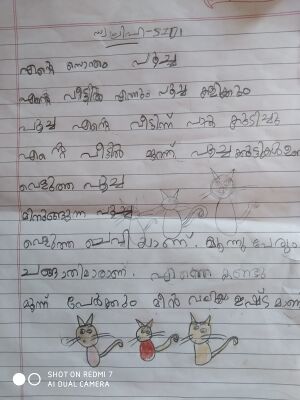 എന്റെ സ്വന്തം പൂച്ച
എന്റെ വീട്ടിൽ എന്നും പൂച്ച കളിക്കും
പൂച്ച എന്റെ വീട്ടിന്ന് പാൽ കുടിച്ചു
എന്റെ വീട്ടിൽ മൂന്ന് പൂച്ചകുട്ടികൾ ഉണ്ട
വെളുത്ത പൂച്ച
മിനുങ്ങുന്ന പൂച്ച
വെളുത്ത ചെവിയാണ്. മൂന്നു പേരും
ചങ്ങാതിമാരാണ്. എന്നെ കണ്ടു
മൂന്ന് പേർക്കും മീൻ വലിയ ഇഷ്ട മാണ്
SHOT ON REDMI 7
AI DUAL CAMERA